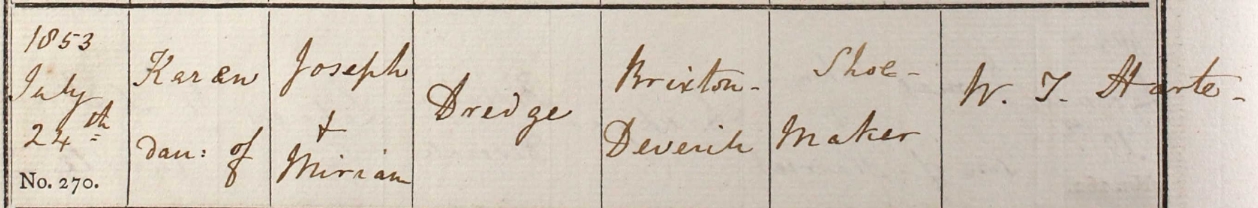 1853
July
24th
No. 270.
Karen
dau: of
Joseph
+
Miriam
Dredge
Brixton-
Deverill
Shoe-
Maker
W. T. Harte-